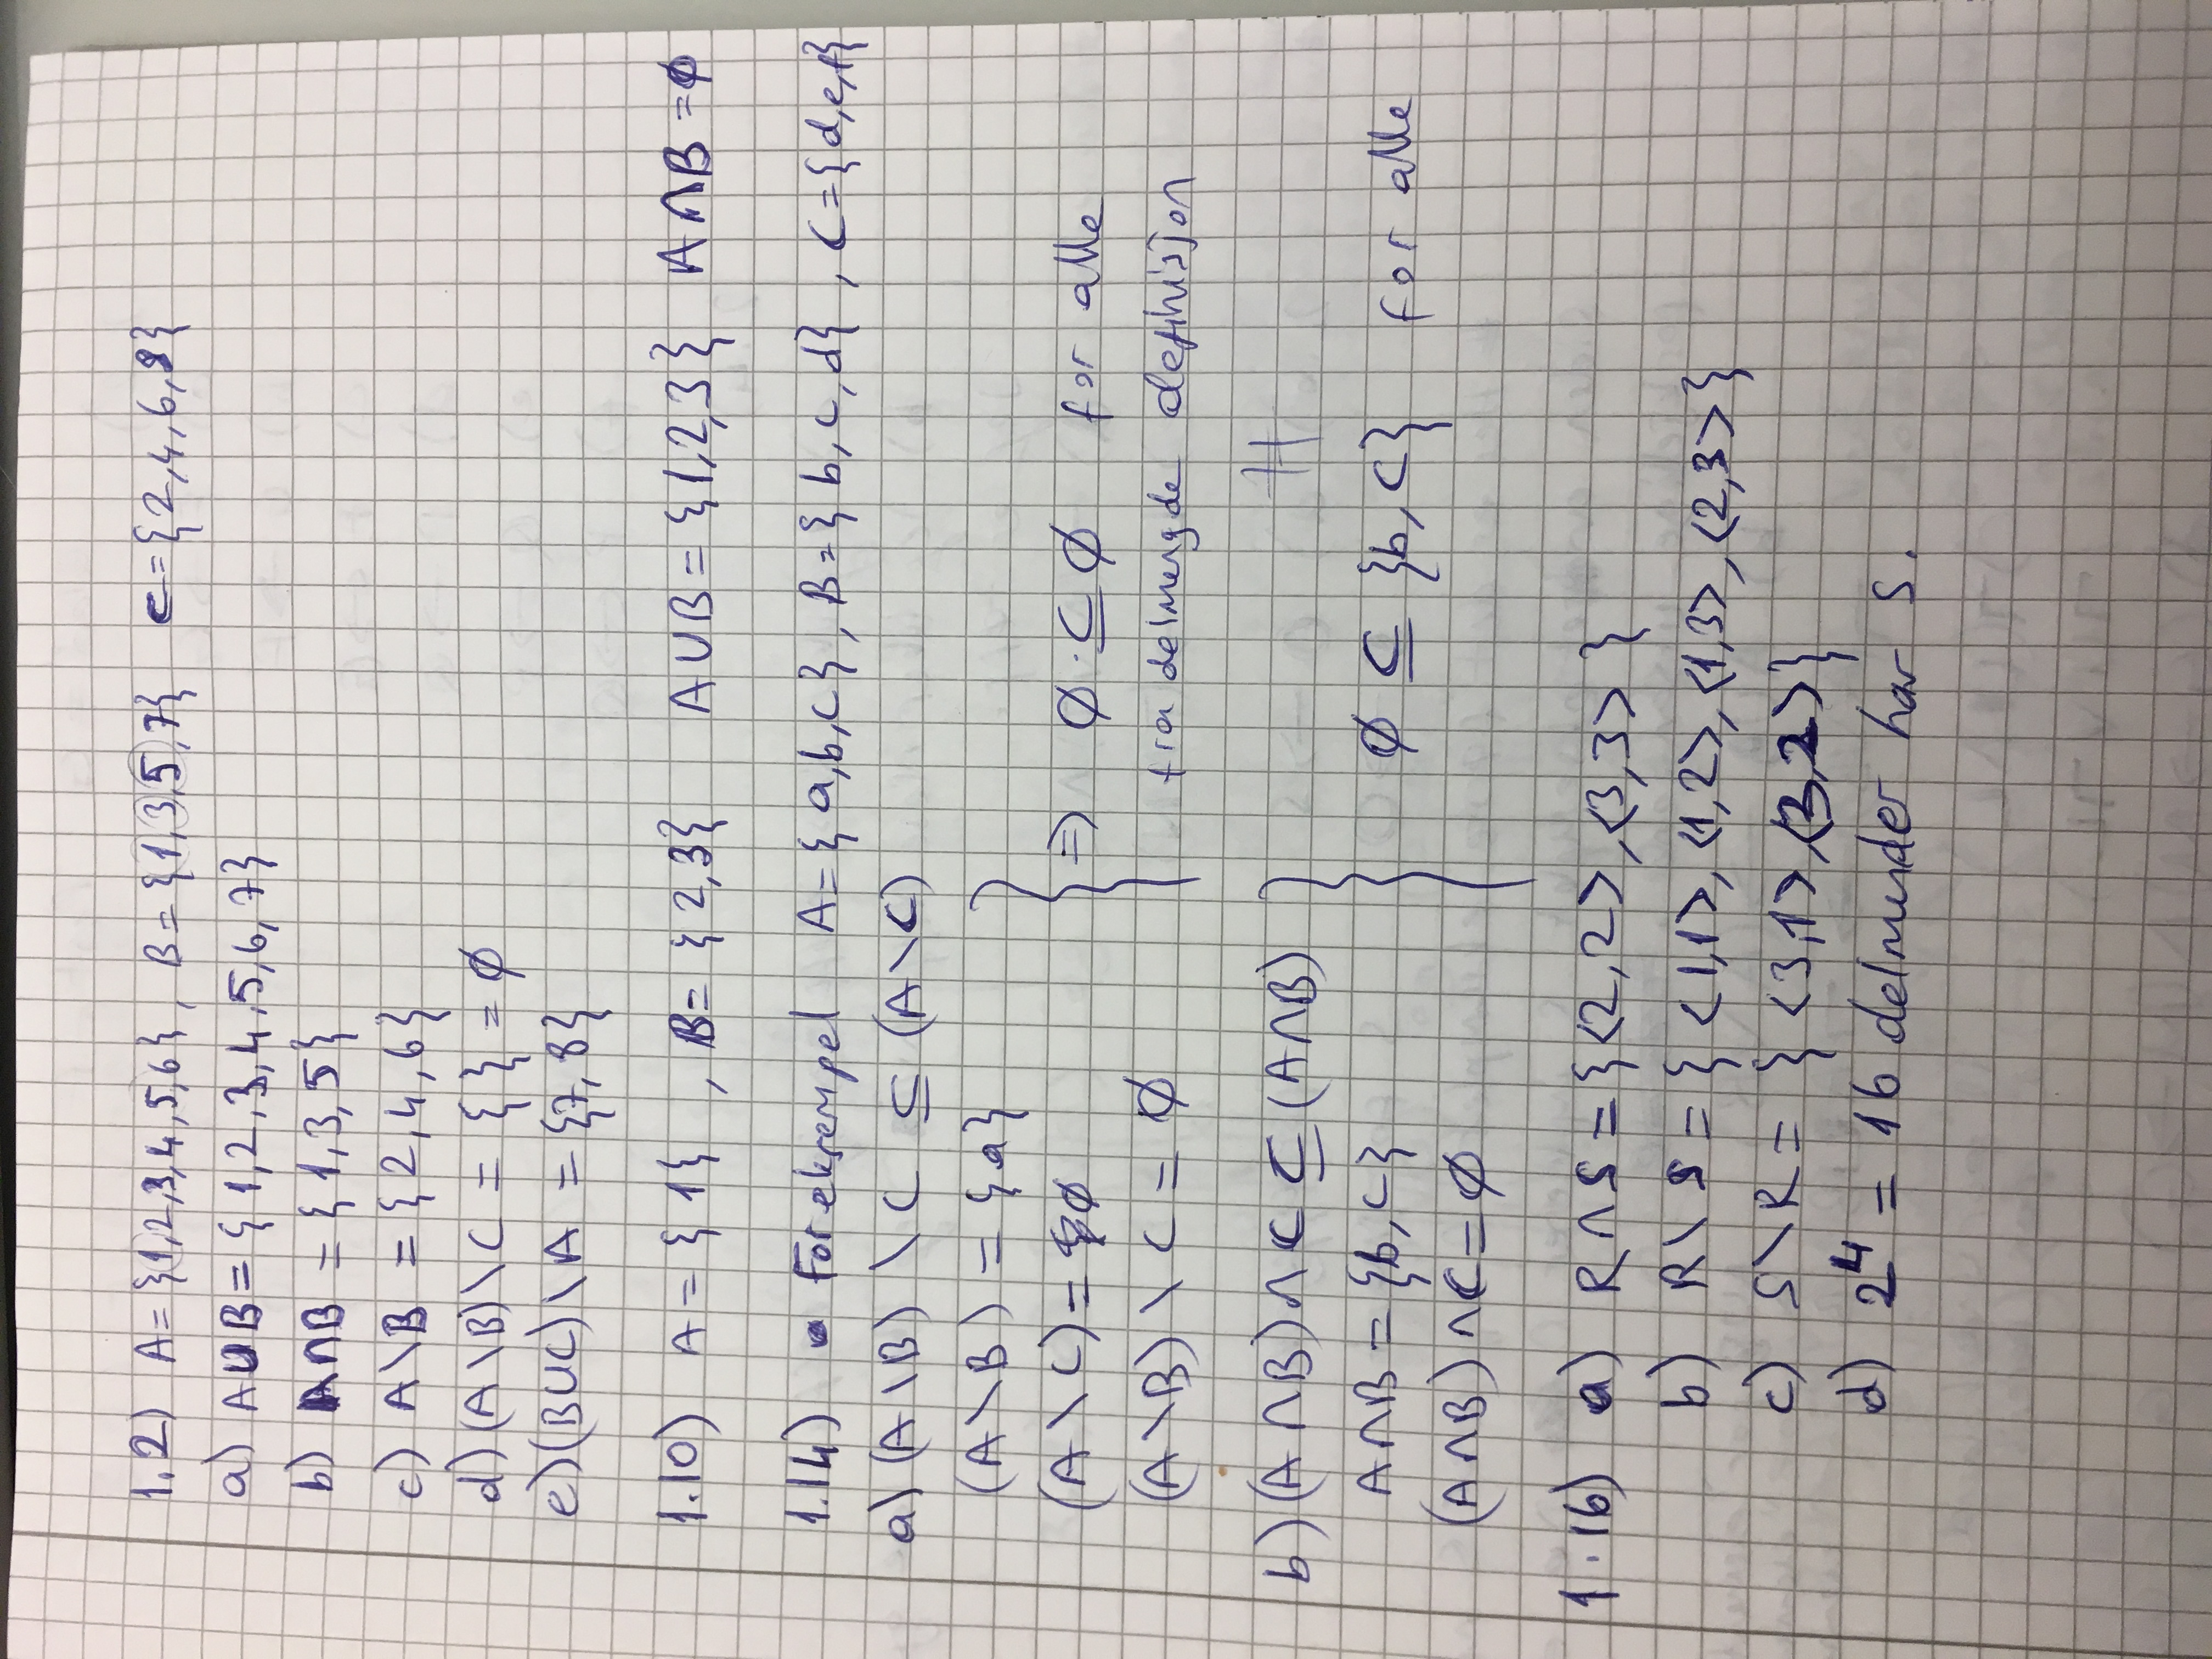 1.2) A = {1,2,3,4,5,6}, B = {1,3,5,7} C = {2,4,6,8}
a) A∪B = {1,2,3,4,5,6,7}
b) A∩B = {1,3,5}
c) A\B = {2,4,6}
d) (A\B)\C = { } = ∅
e) (B∪C)\A = {7,8}
1.10) A = {1}, B = {2,3} A∪B = {1,2,3} A∩B = ∅
1.14) For eksempel A = {a,b,c}, B = {b,c,d}, C = {d,e,f}
a) (A\B) \ C ⊆ (A\C)
(A\B) = {a}
(A\C) = ∅ ⇒ ∅ · ⊆ ∅ for alle
(A\B) \ C = ∅ fra delmengde definisjon
b) (A∩B)∩C ⊆ (A∩B)
A∩B = {b,c} ∅ ⊆ {b,c} for alle
(A∩B)∩C = ∅
1.16) a) R∩S = {<2,2>,<3,3>}
b) R\S = {<1,1>,<1,2>,<1,3>,<2,3>}
c) S\R = {<3,1>,<3,2>}
d) 2⁴ = 16 delmender har S.